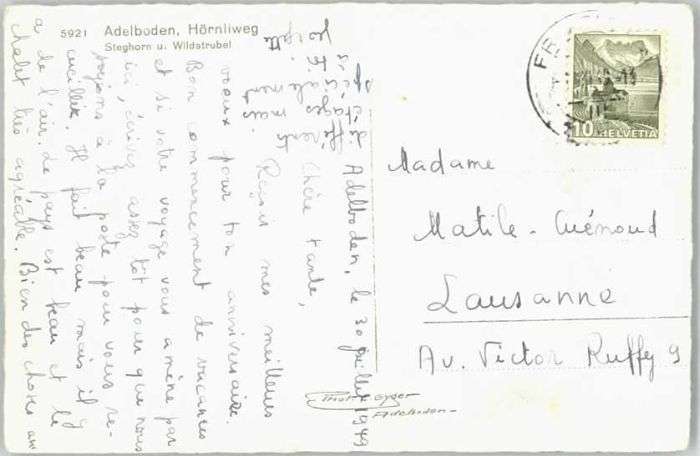 5921 Adelboden, Hörnliweg
Steghorn u. Wildstrubel
Adelboden, le 30 juillet 1949
Chère tante,
Reçois mes meilleurs
voeux pour ton anniversaire.
Bon commencement de vacances
et si votre voyage vous amène par
ici, écrivez assez tôt pour que nous
soyons à la poste pour vous re-
cueillir. Il fait beau mais il y
a de l'air. Le pays est beau et le
chalet très agréable. Bien des choses aux
différents
étages mais
spécialement
à F.
HELVETIA
10
Madame
Matile-Guénoud
Lausanne
Av. Victor Ruffy 9
Phot. E. Gyger
Adelboden